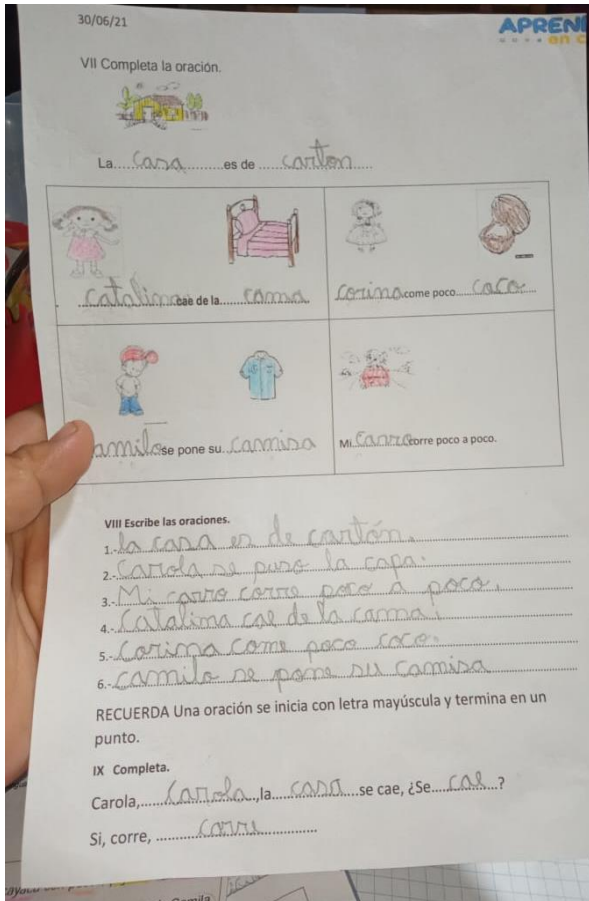 30/06/21
APREN
en c
VII Completa la oración.
La.....casa.....es de.....carton.....
Catalina cae de la.....cama
Corina come poco.....coco.....
amilo se pone su.camisa
Mi.carro corre poco a poco.
VIII Escribe las oraciones.
1.-la casa es de cartón.
2.-Carola se puso la capa.
3.-Mi carro corre poco a poco.
4.-Catalima cae de la cama.
5.-Corima come poco coco.
6.-camilo se pone su camisa
RECUERDA Una oración se inicia con letra mayúscula y termina en un
punto.
IX Completa.
Carola,.....Carola.....,la.....casa.....se cae, ¿Se.....cae.....?
Si, corre, .....corre.....